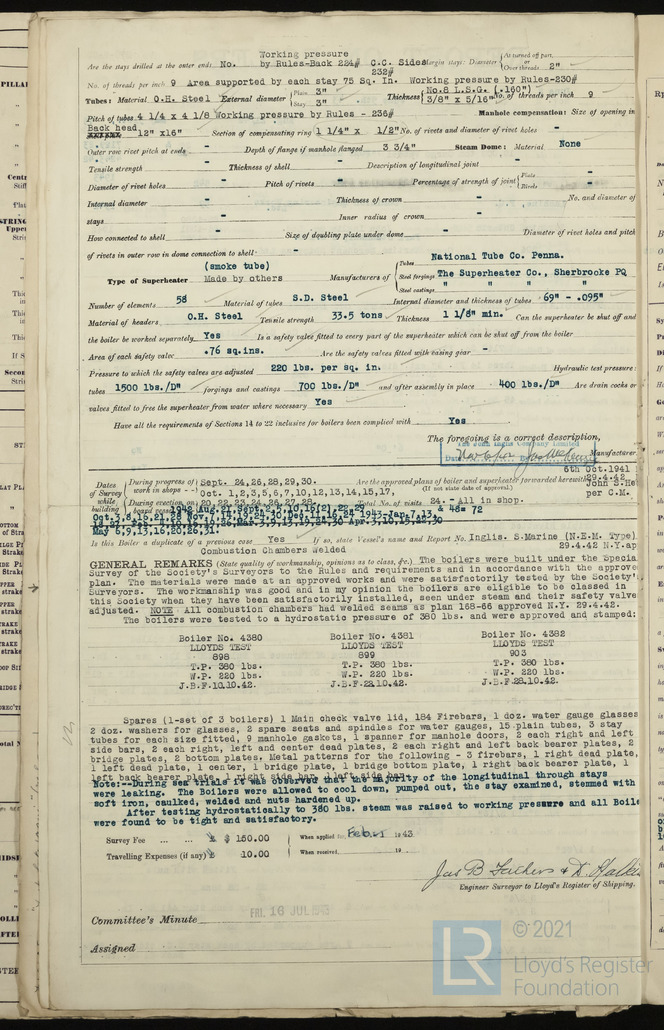 Working pressure
Are the stays drilled at the outer ends No. by Rules-Back 224# C.C. Sides Margin stays: Diameter { At turned off part, or Over threads 2"
232#
No. of threads per inch 9 Area supported by each stay 75 Sq. In. Working pressure by Rules-230#
Tubes: Material O.H. Steel External diameter { Plain 3" Stay 3" Thickness { No.8 L.S.G. (.160") 3/8" x 5/16" No. of threads per inch 9
Pitch of tubes 4 1/4 x 4 1/8 Working pressure by Rules - 236# Manhole compensation: Size of opening in
Back head 12" x16" Section of compensating ring 1 1/4" x 1/2" No. of rivets and diameter of rivet holes -
Outer row rivet pitch at ends - Depth of flange if manhole flanged 3 3/4" Steam Dome: Material None
Tensile strength - Thickness of shell - Description of longitudinal joint -
Diameter of rivet holes - Pitch of rivets - Percentage of strength of joint { Plate - Rivets -
Internal diameter - Thickness of crown - No. and diameter of
stays - Inner radius of crown -
How connected to shell - Size of doubling plate under dome - Diameter of rivet holes and pitch
of rivets in outer row in dome connection to shell -
Type of Superheater (smoke tube) Made by others Manufacturers of { Tubes National Tube Co. Penna.
Steel forgings The Superheater Co., Sherbrooke PQ
Steel castings " " " "
Number of elements 58 Material of tubes S.D. Steel Internal diameter and thickness of tubes .69" - .095"
Material of headers O.H. Steel Tensile strength 33.5 tons Thickness 1 1/8" min. Can the superheater be shut off and
the boiler be worked separately Yes Is a safety valve fitted to every part of the superheater which can be shut off from the boiler
Area of each safety valve .76 sq.ins. Are the safety valves fitted with easing gear -
Pressure to which the safety valves are adjusted 220 lbs. per sq. in. Hydraulic test pressure:
tubes 1500 lbs./D" forgings and castings 700 lbs./D" and after assembly in place 400 lbs./D" Are drain cocks or
valves fitted to free the superheater from water where necessary Yes
Have all the requirements of Sections 14 to 22 inclusive for boilers been complied with Yes
The foregoing is a correct description,
The John Inglis Company Limited
Manufacturer
Dates of Survey while building { During progress of work in shops - - Sept. 24,26,28,29,30. Are the approved plans of boiler and superheater forwarded herewith 29.4.42
6th Oct.1941
Oct.1,2,3,5,6,7,10,12,13,14,15,17, (If not state date of approval.)
per C.M.
During erection on board vessel - - 20,22,23,24,26,27,28. Total No. of visits 24 - All in shop.
& 48= 72
Is this Boiler a duplicate of a previous case Yes If so, state Vessel's name and Report No. Inglis. S.Marine (N.E.M. Type)
Combustion Chambers Welded 29.4.42 N.Y-ap
GENERAL REMARKS (State quality of workmanship, opinions as to class, &c.) The boilers were built under the Specia
Survey of the Society's Surveyors to the Rules and requirements and in accordance with the approve
plan. The materials were made at an approved works and were satisfactorily tested by the Society'
Surveyors. The workmanship was good and in my opinion the boilers are eligible to be classed in
this Society when they have been satisfactorily installed, seen under steam and their safety valve
adjusted. NOTE All combustion chambers had welded seams as plan 168-66 approved N.Y. 29.4.42.
The boilers were tested to a hydrostatic pressure of 380 lbs. and were approved and stamped:
Boiler No. 4380 Boiler No. 4381 Boiler No. 4382
LLOYDS TEST LLOYDS TEST LLOYDS TEST
898 899 903
T.P. 380 lbs. T.P. 380 lbs. T.P. 380 lbs.
W.P. 220 lbs. W.P. 220 lbs. W.P. 220 lbs.
J.B.F.10.10.42. J.B.F.22.10.42. J.B.F.28.10.42.
Spares (1-set of 3 boilers) 1 Main check valve lid, 184 Firebars, 1 doz. water gauge glasses
2 doz. washers for glasses, 2 spare seats and spindles for water gauges, 15 plain tubes, 3 stay
tubes for each size fitted, 9 manhole gaskets, 1 spanner for manhole doors, 2 each right and left
side bars, 2 each right, left and center dead plates, 2 each right and left back bearer plates, 2
bridge plates, 2 bottom plates. Metal patterns for the following - 3 firebars, 1 right dead plate,
1 left dead plate, 1 center, 1 bridge plate, 1 bridge bottom plate, 1 right back bearer plate, 1
left back bearer plate, 1 right side bar, 1 left side bar.
Note:--During sea trials it was observed that the majority of the longitudinal through stays
were leaking. The Boilers were allowed to cool down, pumped out, the stay examined, stemmed with
soft iron, caulked, welded and nuts hardened up.
After testing hydrostatically to 380 lbs. steam was raised to working pressure and all Boile
were found to be tight and satisfactory.
Survey Fee ... ... $ 150.00 When applied for, Feb. 1943
Travelling Expenses (if any) 10.00 When received, 19
Engineer Surveyor to Lloyd's Register of Shipping.
Committee's Minute FRI. 16 JUL 1943
Assigned
LR © 2021
Lloyd's Register
Foundation